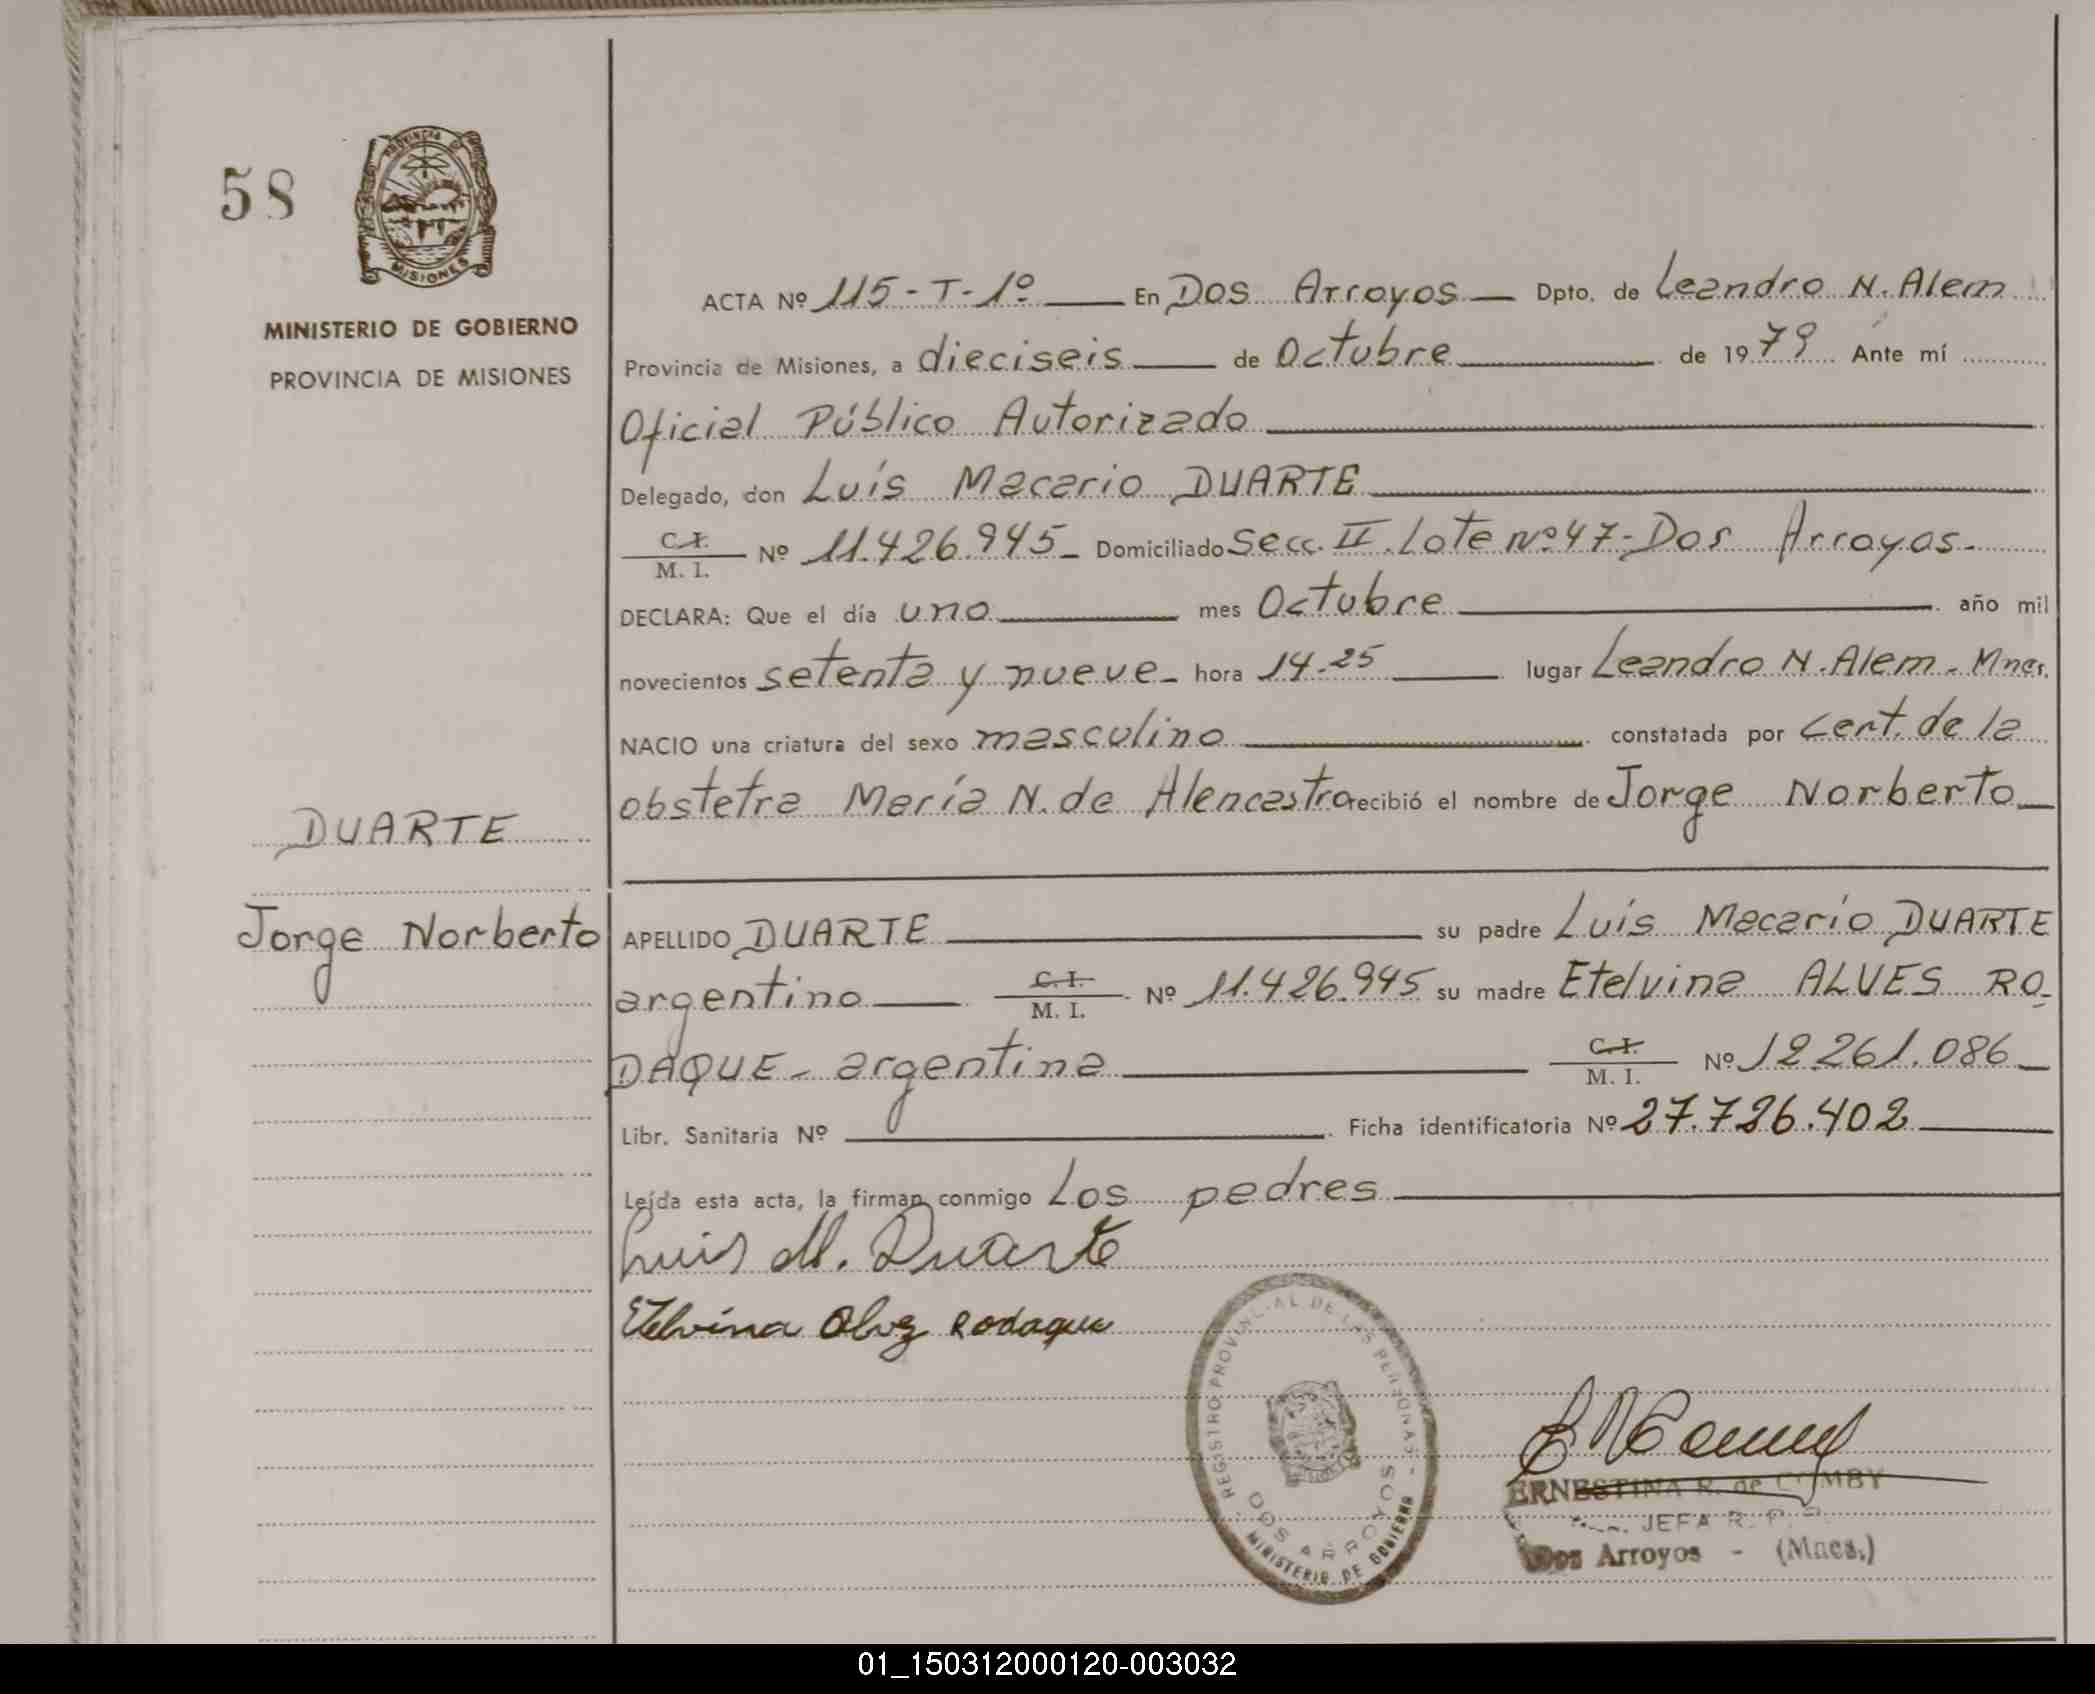 58
PROVINCIA DE
MISIONES
MINISTERIO DE GOBIERNO
PROVINCIA DE MISIONES
ACTA Nº 115-T-1º En Dos Arroyos Dpto. de Leandro N. Alem
Provincia de Misiones, a dieciseis de Octubre de 1979 Ante mí
Oficial Público Autorizado
Delegado, don Luís Macario DUARTE
C.I. M. I. Nº 11.426.945 Domiciliado Secc. II. Lote Nº 47-Dos Arroyos.
DECLARA: Que el día uno mes Octubre año mil
novecientos setenta y nueve hora 14.25 lugar Leandro N. Alem - Mnes.
NACIO una criatura del sexo masculino constatada por Cert. de la
obstetra María N. de Alencastro recibió el nombre de Jorge Norberto
DUARTE
Jorge Norberto
APELLIDO DUARTE su padre Luis Macario DUARTE
argentino C.I. M. I. Nº 11.426.945 su madre Etelvina ALVES RO-
DAQUE - argentina C.I. M. I. Nº 12.261.086
Libr. Sanitaria Nº Ficha identificatoria Nº 27.726.402
Leída esta acta, la firman conmigo Los padres
Luis M. Duarte
Etelvina Alvez Rodaque
REGISTRO PROVINCIAL DE LAS PERSONAS
DOS ARROYOS
MINISTERIO DE GOBIERNO
ERNESTINA R. de COMBY
JEFA R. P. P.
Dos Arroyos - (Mnes.)
01_150312000120-003032